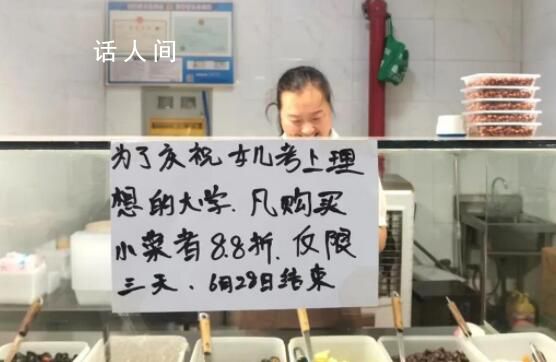 话人间
为了庆祝女儿考上理
想的大学.凡购买
小菜者8.8折.仅限
三天、6月28日结束